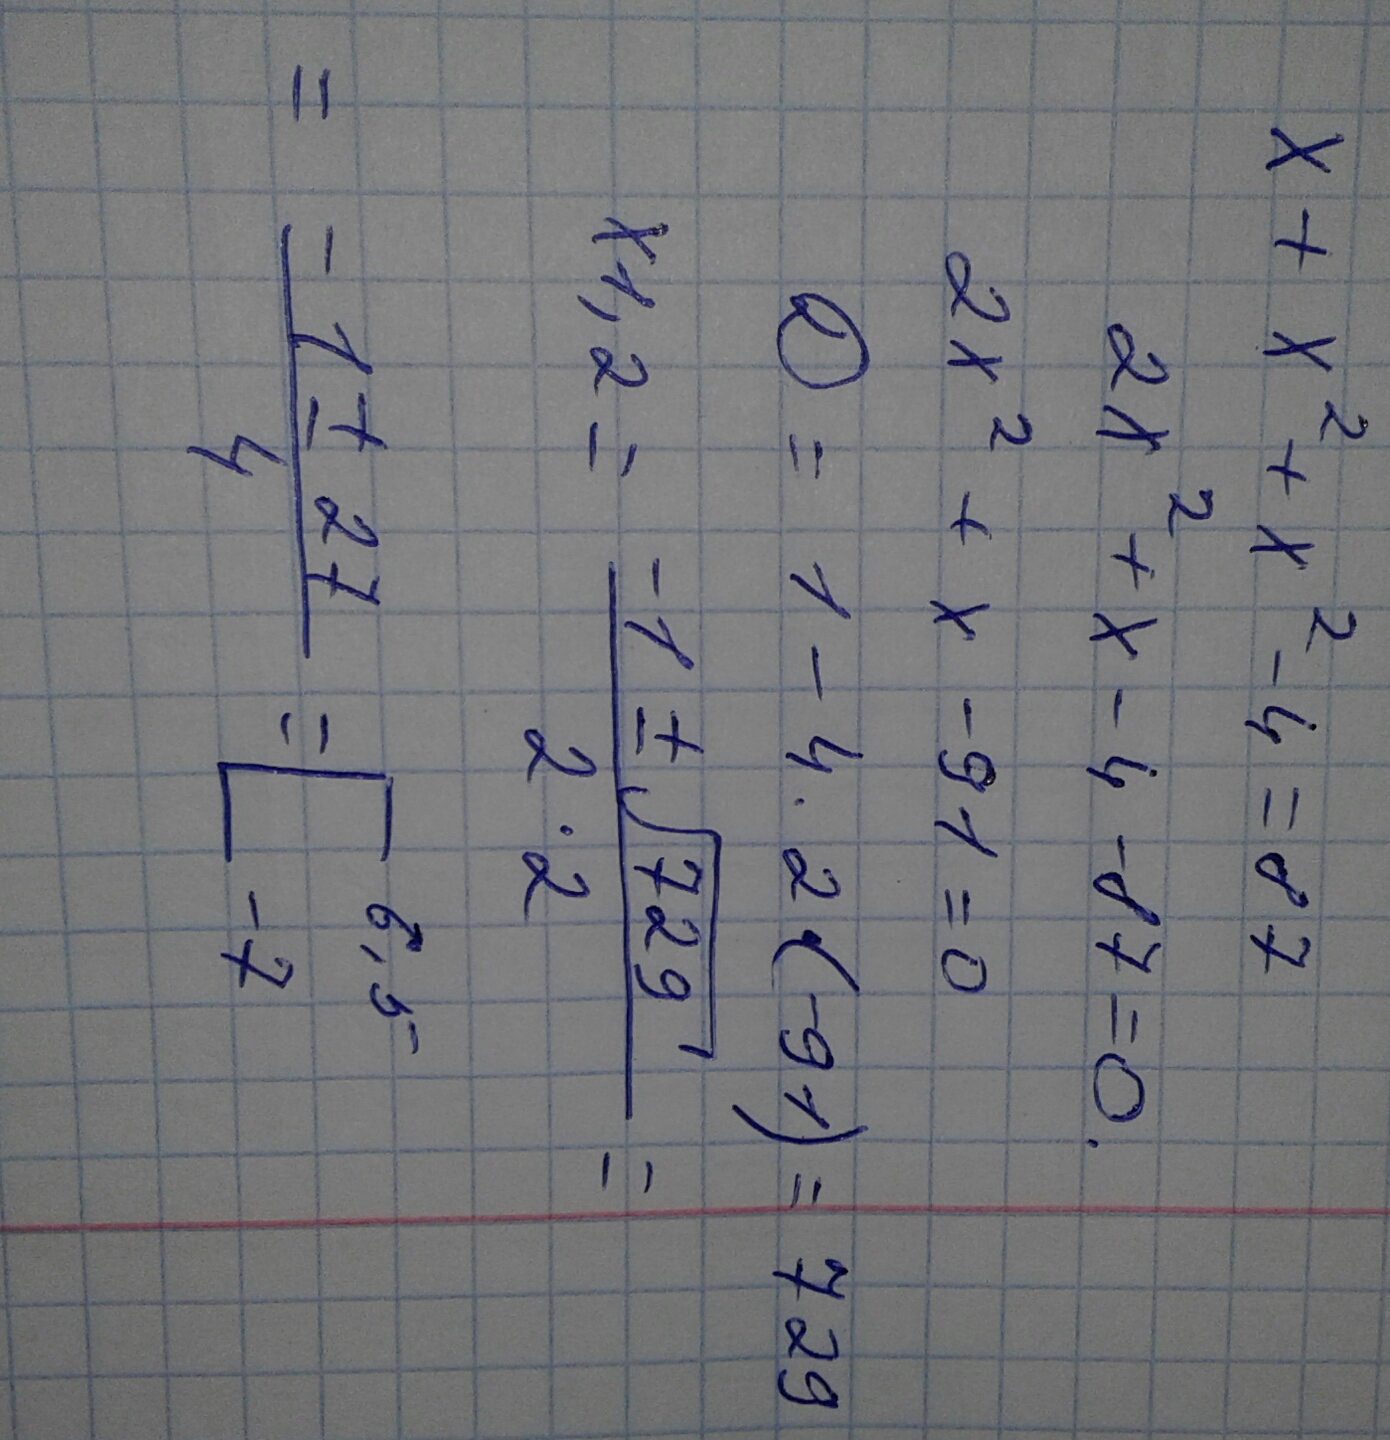 x + x² + x² - 4 = 87
2x² + x - 4 - 87 = 0.
2x² + x - 91 = 0
D = 1 - 4 · 2(-91) = 729
x1,2 = (-1 ± √729) / (2 · 2) =
= (-1 ± 27) / 4 = [ 6,5
-7